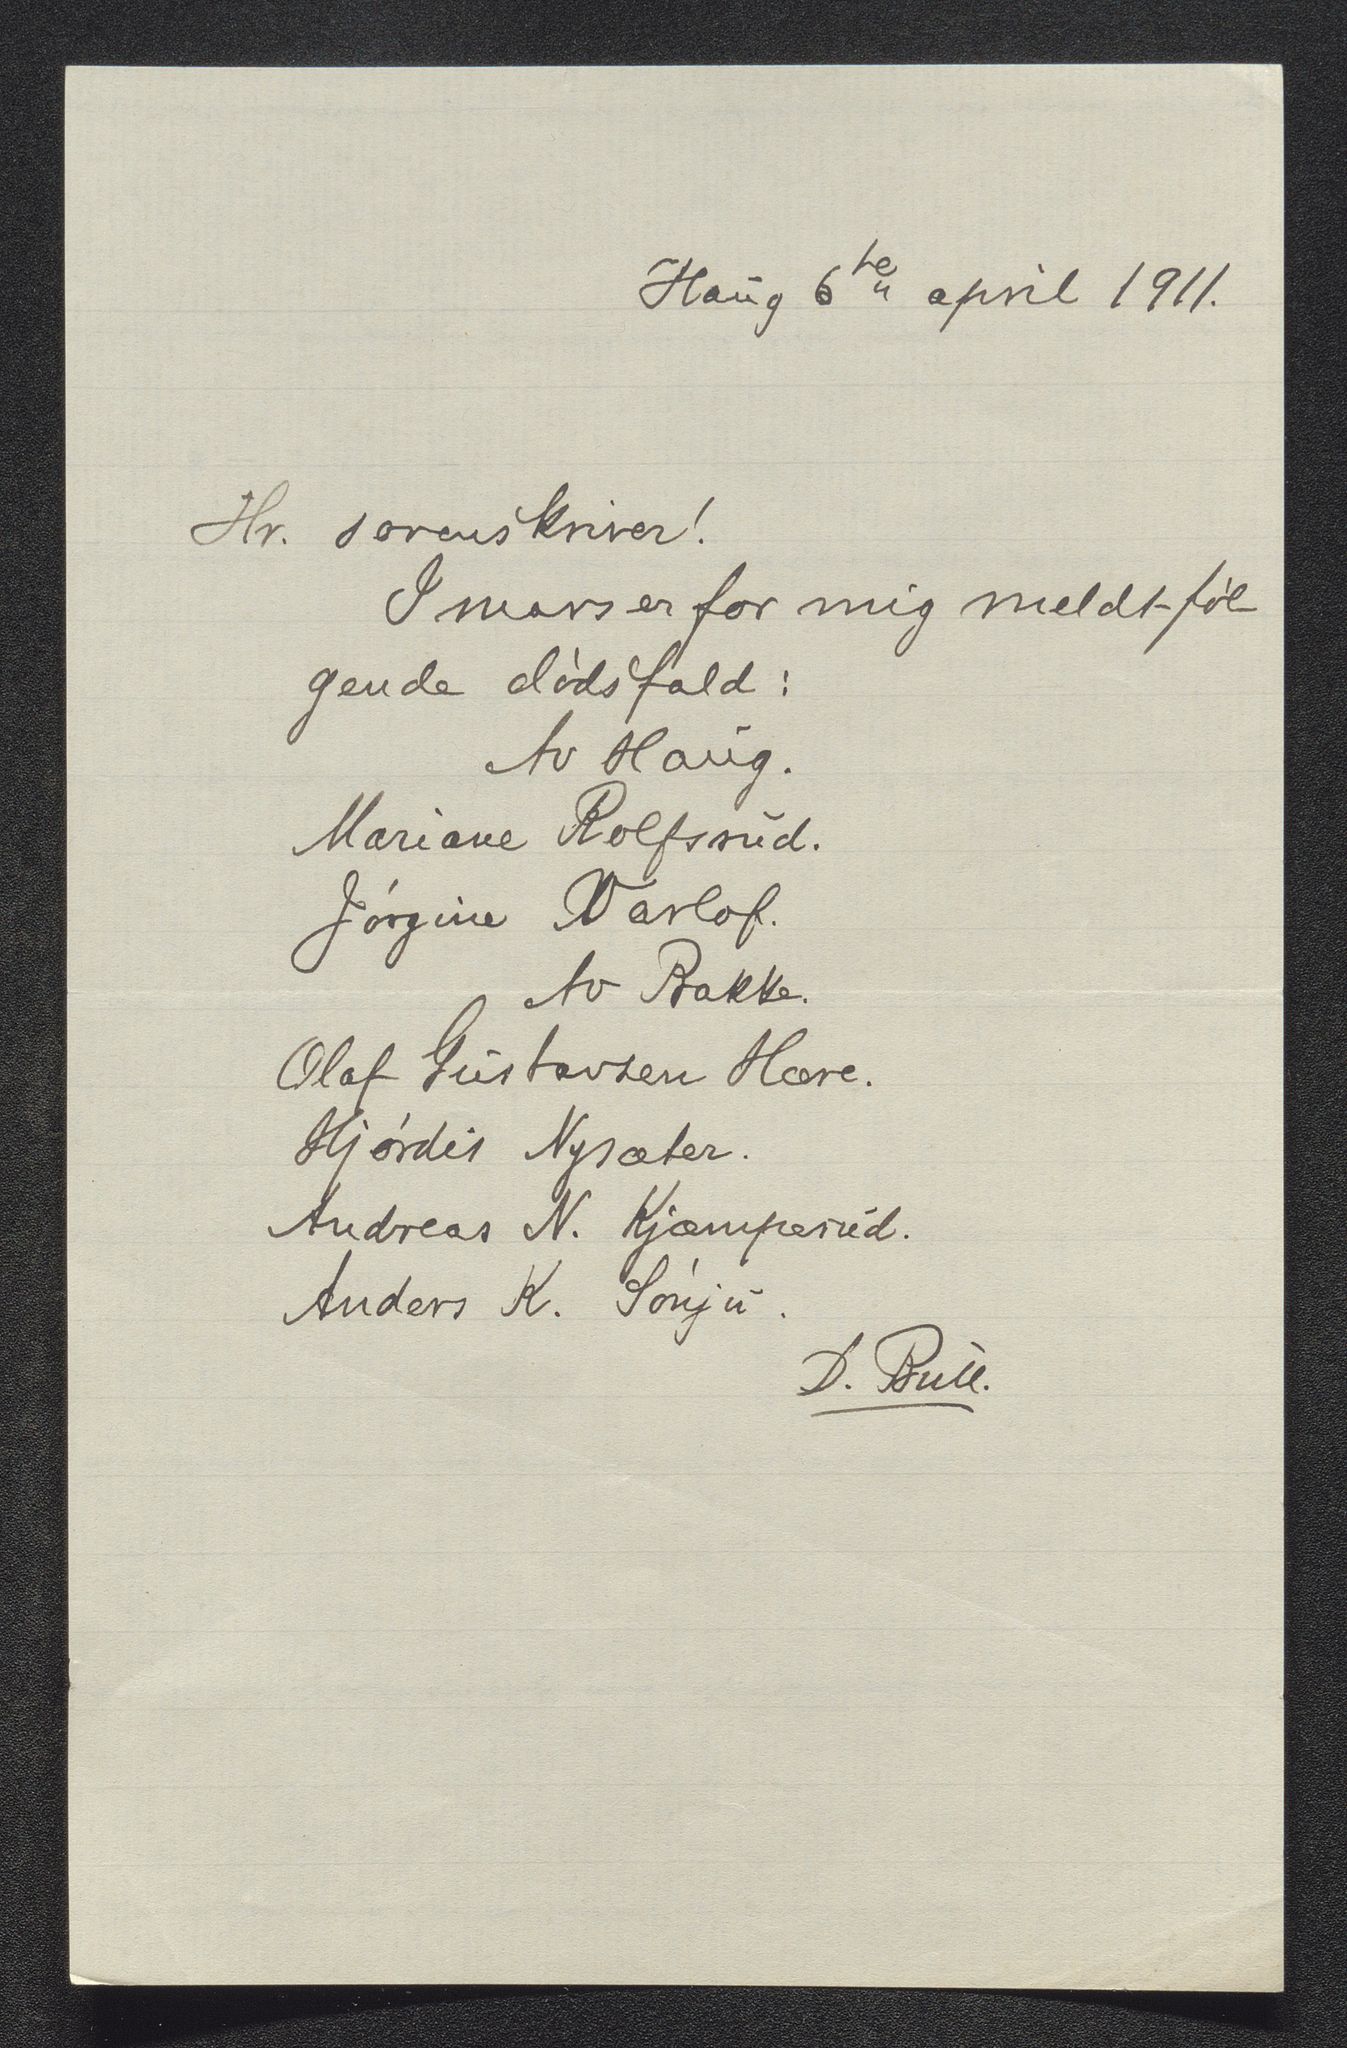 Haug 6te april 1911.
Hr. sorenskriver!
I mars er for mig meldt føl-
gende dødsfald:
Av Haug.
Mariane Rolfsrud.
Jørgine Varlof.
Av Bakke.
Olaf Gustavsen Hære.
Hjørdis Nysæter.
Andreas N. Kjæmperud.
Anders K. Sønju.
D. Bull.